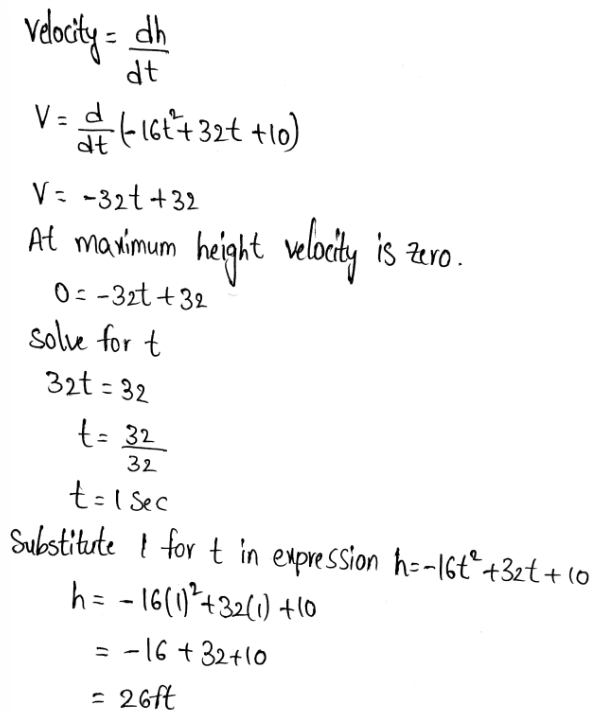 Velocity = dh/dt
V = d/dt (-16t²+32t+10)
V = -32t+32
At maximum height velocity is zero.
0 = -32t+32
solve for t
32t = 32
t = 32/32
t = 1 sec
Substitute 1 for t in expression h=-16t²+32t+10
h = -16(1)²+32(1)+10
= -16+32+10
= 26ft